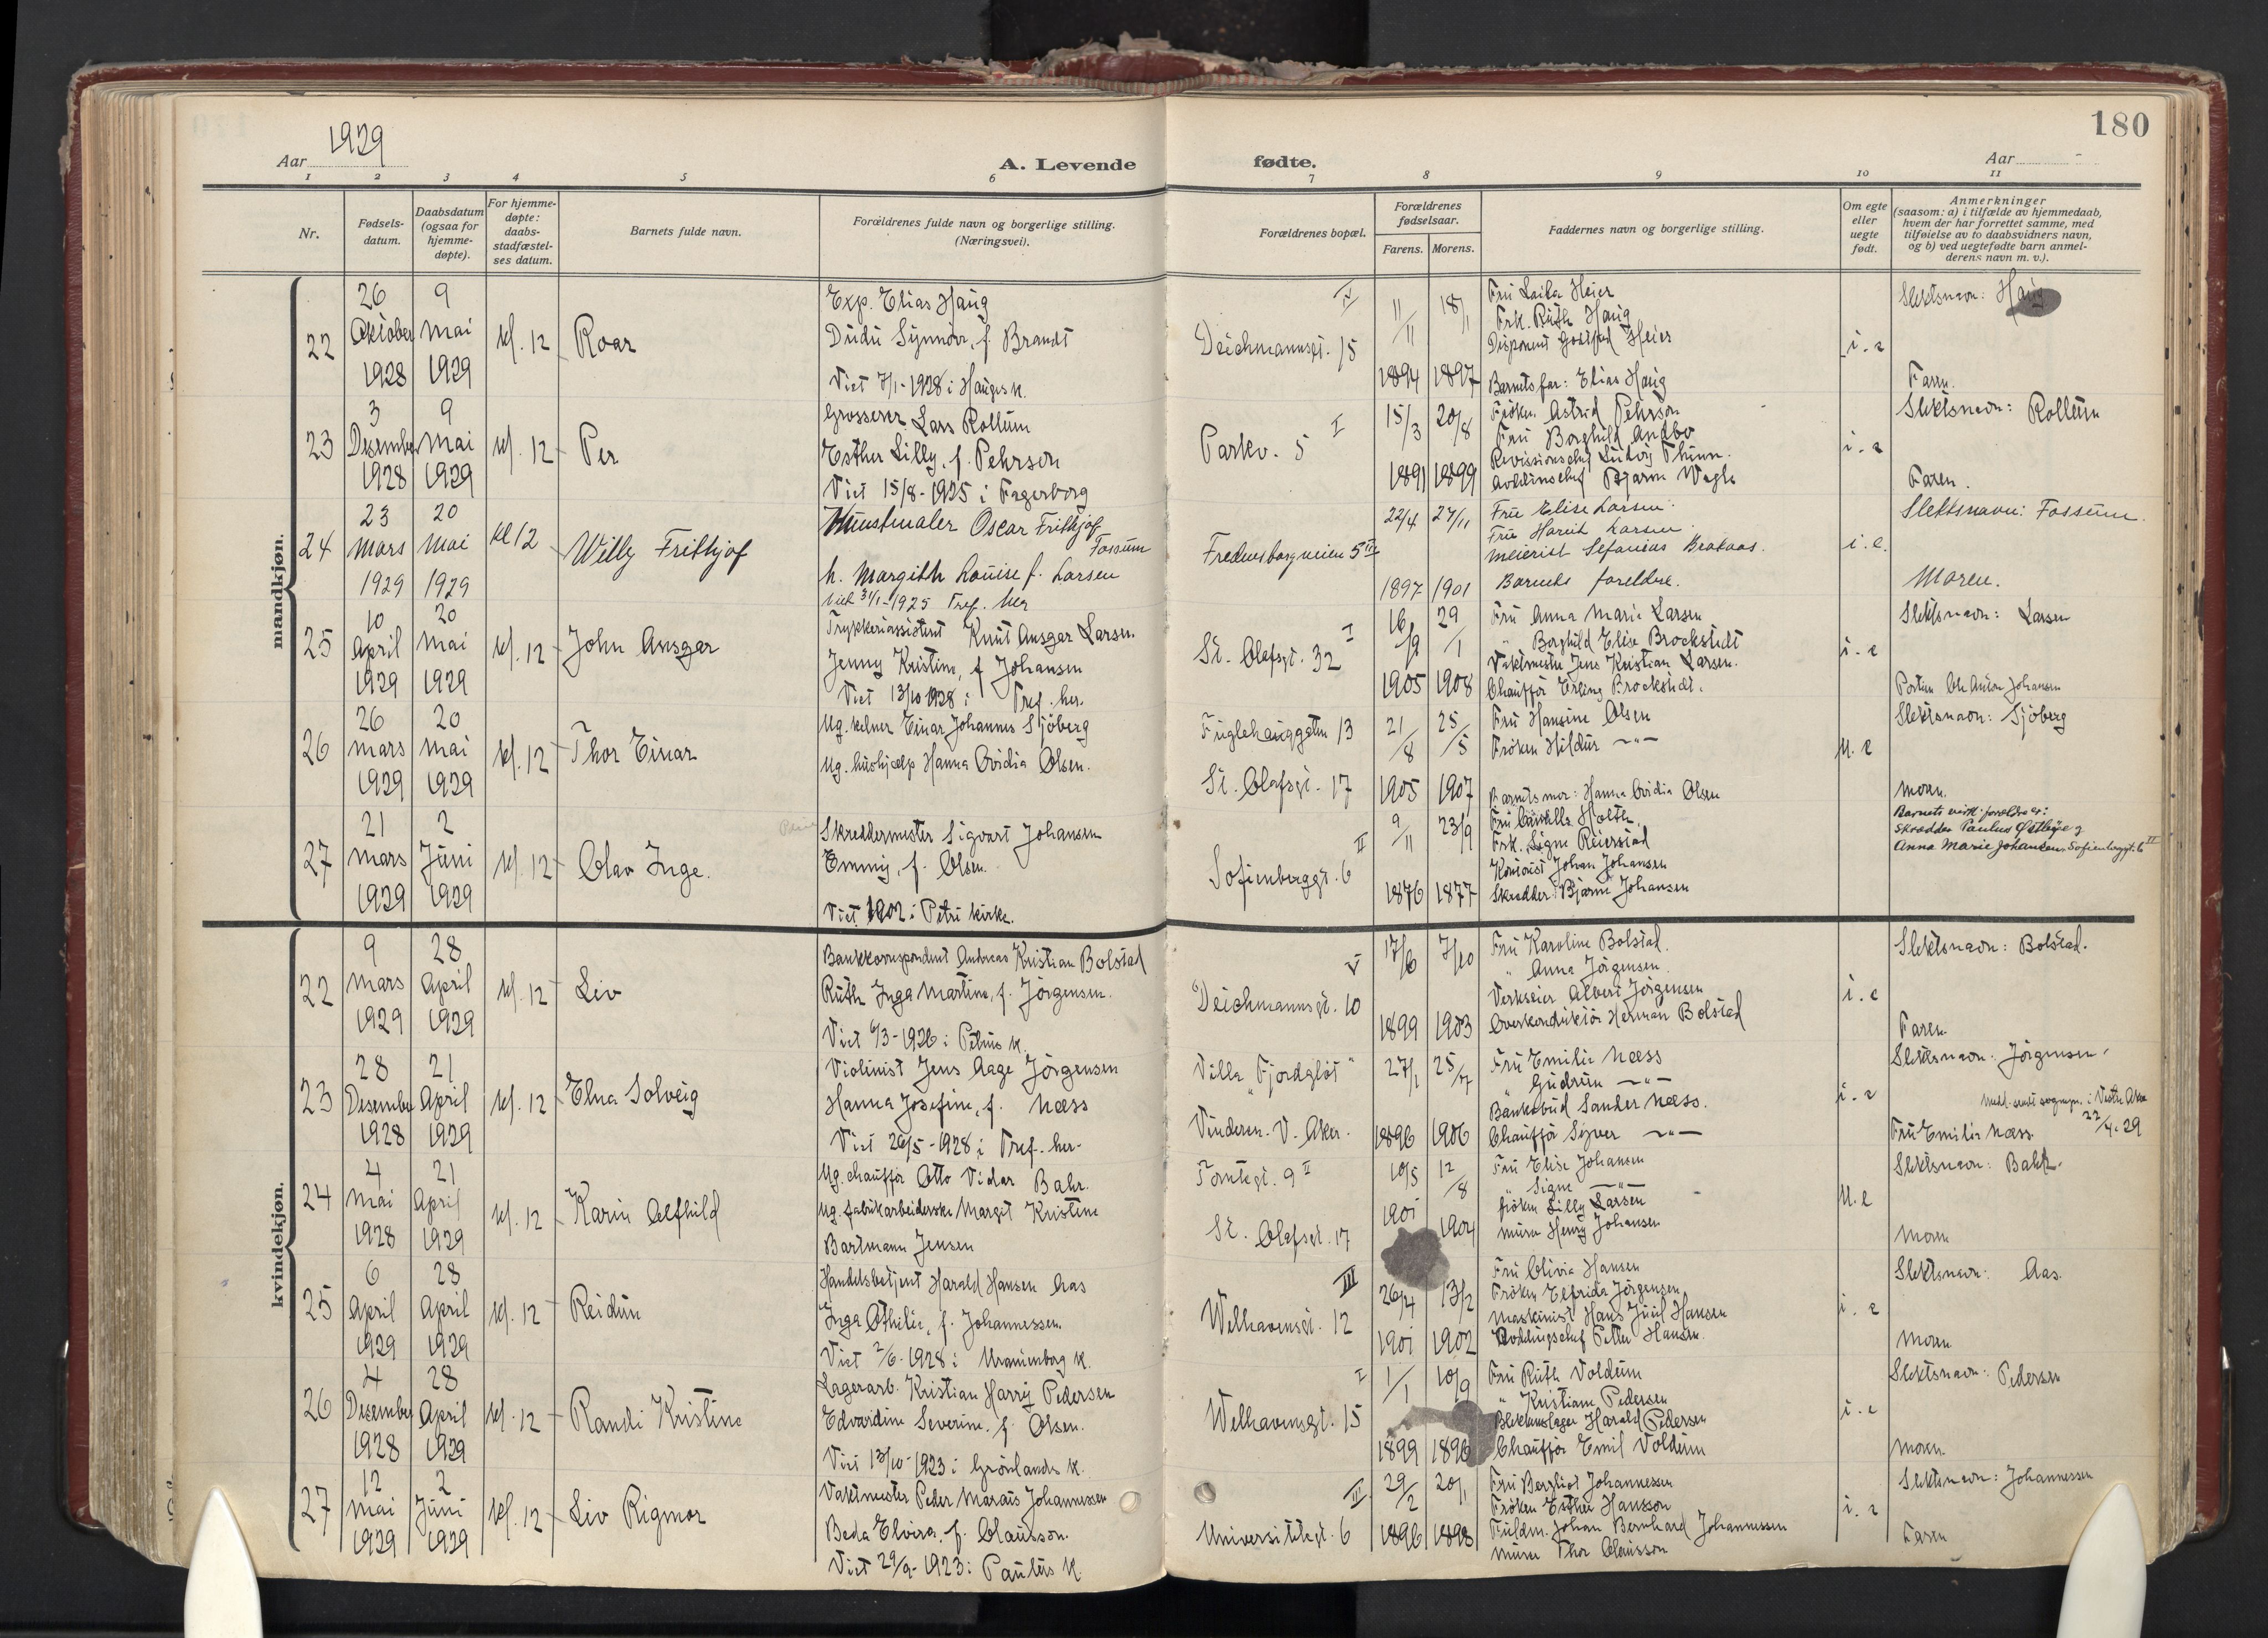 180
Aar 1929
A. Levende
fødte.
Aar
1 2 3 4 5 6 7 8 9 10 11
Nr.
Fødsels-
datum.
Daabsdatum
(ogsaa for
hjemme-
døpte).
For hjemme-
døpte:
daabs-
stadfæstel-
ses datum.
Barnets fulde navn.
Forældrenes fulde navn og borgerlige stilling.
(Næringsvei).
Forældrenes bopæl.
Forældrenes
fødselsaar.
Farens. Morens.
Faddernes navn og borgerlige stilling.
Om egte
eller
uegte
født.
Anmerkninger
(saasom: a) i tilfælde av hjemmedaab,
hvem der har forrettet samme, med
tilføielse av to daabsvidners navn,
og b) ved uegtefødte barn anmel-
derens navn m. v.).
mandkjøn.
22
26
Oktober
1928
9
Mai
1929
kl. 12
Roar
Exp. Elias Haug
Dudu Synnöv, f. Brandt
Viet 7/1-1928 i Hauges k.
Deichmannsgt. 15 IV
11/11
1894
18/1
1897
Fru Laila Heier
Frk. Ruth Haug
Disponent Gottfred Heier
Barnets far: Elias Haug
i. e
Slektsnavn: Haug
Faren.
23
3
Desember
1928
9
Mai
1929
kl. 12
Per
Grosserer Lars Rollum
Esther Lilly, f. Pehrson
Viet 15/8-1925 i Fagerborg
Parkv. 5 I
15/3
1891
20/8
1899
Fröken Astrid Pehrson
Fru Borghild Andbo
Revisionschef Ludvig Thunn.
Avdelinschef Bjarne Wagle
i. e
Slektsnavn: Rollum
Faren.
24
23
Mars
1929
20
Mai
1929
kl 12
Willy Frithjof
Kunstmaler Oscar Frithjof
Fossum
h. Margith Louise f. Larsen
Viet 31/1-1925 Tref. her
Fredensborgveien 5 III
22/4
1897
27/11
1901
Fru Elise Larsen.
Fru Harieth Larsen
Meierist Sefanias Brataas.
Barnets foreldre.
i. e.
Slektsnavn: Fossum.
Moren.
25
10
April
1929
20
Mai
1929
kl. 12
John Ansgar
Trykkeriassistent Knut Ansgar Larsen.
Jenny Kristine, f. Johansen
Viet 13/10 1928 i Tref. her.
St. Olafsgt. 32 I
16/9
1905
29/1
1908
Fru Anna Marie Larsen
" Borghild Elise Brockstedt
Vaktmester Jens Kristian Larsen.
Chauffør Erling Brockstedt.
i. e
Slektsnavn: Larsen
Portier Chr. Anton Johansen
26
26
Mars
1929
20
Mai
1929
kl. 12
Thor Einar
Ug. kelner Einar Johannes Sjöberg
Ug. hushjælp Hanna Ovidia Olsen.
Fuglehauggaten 13
St. Olafsgt. 17
21/8
1905
25/5
1907
Fru Hansine Olsen
Fröken Hildur —"—
Barnets mor: Hanna Ovidia Olsen
U. e
Slektsnavn: Sjöberg
Moren.
27
21
Mars
1929
2
Juni
1929
kl. 12
Olav Inge.
Skreddermester Sigvart Johansen
Emmy, f. Olsen.
Viet 1902 i Petri kirke.
Sofienberggt. 6 II
9/11
1876
23/9
1877
Fru Camilla Holth.
Frk. Signe Reierstad
Kontorist Johan Johansen
Skredder Bjarne Johansen
Barnets virk. foreldre er:
Skrædder Paulus Østbye og
Anna Marie Johansen Sofienberggt. 6 II
kvindekjøn.
22
9
Mars
1929
28
April
1929
kl. 12
Liv
Bankkorrespondent Andreas Kristian Bolstad
Ruth Inga Martine, f. Jörgensen.
Viet 6/3-1926 i Petrus k.
Deichmannsgt. 10 V
17/6
1899
7/10
1903
Fru Karoline Bolstad.
" Anna Jörgensen.
Verkseier Albert Jörgensen
Overkonduktör Herman Bolstad
i. e
Slektsnavn: Bolstad.
Faren
23
28
Desember
1928
21
April
1929
kl. 12
Elna Solveig
Violinist Jens Aage Jörgensen
Hanna Josefine, f. Næss
Viet 26/5-1928 i Tref. her.
Villa "Fjordgløt"
Vinderen. V. Aker.
27/1
1896
25/7
1906
Fru Emilie Næss
" Gudrun —"—
Bankbud Sander Næss.
Chauffør Sigver —"—
i. e
Slektsnavn: Jörgensen.
Medd. sendt sognepr. i Vestre Aker
22/4-29
Fru Emilie Næss.
24
4
Mai
1928
21
April
1929
kl. 12
Karin Alfhild
Ug. chauffør Otto Vidar Bahr.
Ug. fabrikarbeiderske Margit Kristine
Bartmann Jensen
Tomtegt. 9 II
St. Olafsgt. 17
10/5
1901
12/8
1904
Fru Elise Johansen
" Signe —"—
Fröken Lilly Larsen
Murer Henry Johansen
U. e
Slektsnavn: Bahr.
Moren
25
6
April
1929
28
April
1929
kl. 12
Reidun
Handelsbetjent Harald Hansen Aas
Inga Othilie, f. Johannessen.
Viet 2/6-1928 i Uranienborg k.
Welhavensgt. 12 III
26/4
1901
13/2
1902
Fru Olivia Hansen
Fröken Elfrida Jörgensen
Maskinist Hans Juul Hansen
Avdelingschef Petter Hansen.
i. e
Slektsnavn: Aas.
Moren
26
4
Desember
1928
28
April
1929
kl. 12
Randi Kristine
Lagerarb. Kristian Harry Pedersen
Edvardine Severine, f. Olsen.
Viet 13/10-1923 i Grönlands k.
Welhavensgt. 15 I
1/1
1899
10/9
1896
Fru Ruth Voldum
" Kristiane Pedersen
Blikkenslager Harald Pedersen
Chauffør Emil Voldum
i. e
Slektsnavn: Pedersen
Moren
27
12
Mai
1929
2
Juni
1929
kl. 12
Liv Rigmor
Vaktmester Peder Marais Johannessen
Beda Elvira, f. Clausson.
Viet 29/9-1923 i Paulus k.
Universitetsgt. 6 III
29/2
1896
20/1
1898
Fru Bergliot Johannessen
Fröken Esther Hansson
Fuldm. Johan Bernhard Johannessen
Murer Thor Clausson
i. e
Slektsnavn: Johannessen
Faren